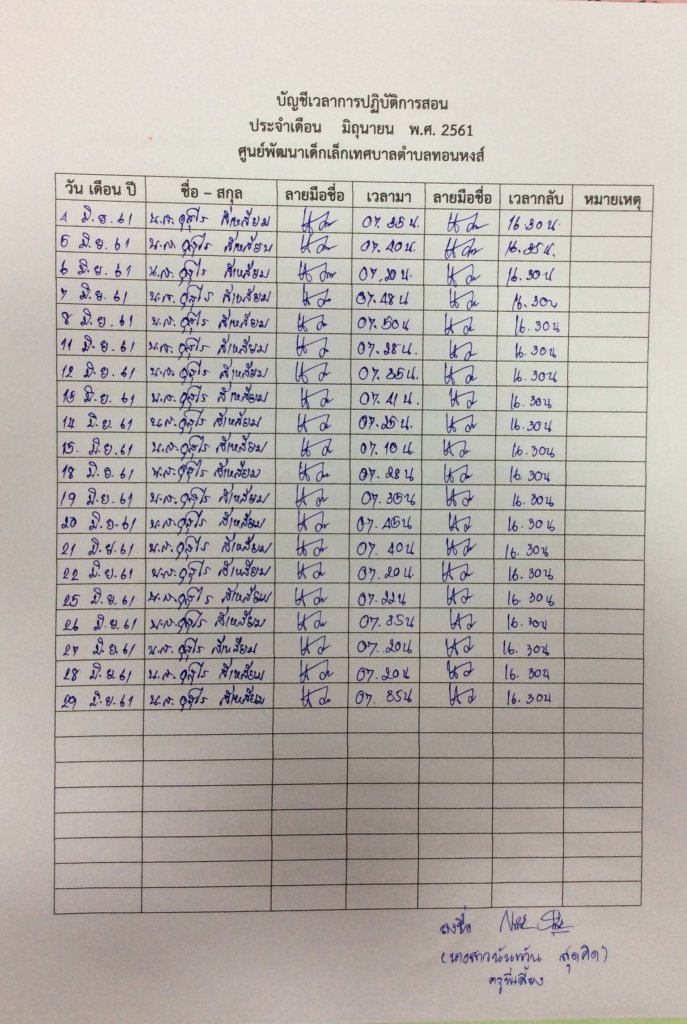 บัญชีเวลาการปฏิบัติการสอน
ประจำเดือน มิถุนายน พ.ศ. 2561
ศูนย์พัฒนาเด็กเล็กเทศบาลตำบลทอนหงส์
วัน เดือน ปี ชื่อ – สกุล ลายมือชื่อ เวลามา ลายมือชื่อ เวลากลับ หมายเหตุ
4 มิ.ย. 61 น.ส. สี่เหลี่ยม 07.35น. 16.30น.
5 มิ.ย. 61 น.ส. สี่เหลี่ยม 07.40น. 16.35น.
6 มิ.ย. 61 น.ส. สี่เหลี่ยม 07.30น. 16.30น
7 มิ.ย. 61 น.ส. สี่เหลี่ยม 07.48น 16.30น
8 มิ.ย. 61 น.ส. สี่เหลี่ยม 07.50น 16.30น
11 มิ.ย. 61 น.ส. สี่เหลี่ยม 07.28น. 16.30น
12 มิ.ย. 61 น.ส. สี่เหลี่ยม 07.35น 16.30น
13 มิ.ย. 61 น.ส. สี่เหลี่ยม 07.41น. 16.30น
14 มิ.ย. 61 น.ส. สี่เหลี่ยม 07.25น 16.30น
15 มิ.ย. 61 น.ส. สี่เหลี่ยม 07.10น 16.30น
18 มิ.ย. 61 น.ส. สี่เหลี่ยม 07.28น 16.30น
19 มิ.ย. 61 น.ส. สี่เหลี่ยม 07.35น 16.30น
20 มิ.ย. 61 น.ส. สี่เหลี่ยม 07.45น 16.30น
21 มิ.ย. 61 น.ส. สี่เหลี่ยม 07.40น 16.30น
22 มิ.ย. 61 น.ส. สี่เหลี่ยม 07.20น. 16.30น
25 มิ.ย. 61 น.ส. สี่เหลี่ยม 07.22น 16.30น
26 มิ.ย. 61 น.ส. สี่เหลี่ยม 07.35น 16.30น
27 มิ.ย. 61 น.ส. สี่เหลี่ยม 07.20น 16.30น
28 มิ.ย. 61 น.ส. สี่เหลี่ยม 07.20น 16.30น
29 มิ.ย. 61 น.ส. สี่เหลี่ยม 07.35น 16.30น
ลงชื่อ
(นางสาวนันทวัน สุดคิด)
ครูพี่เลี้ยง